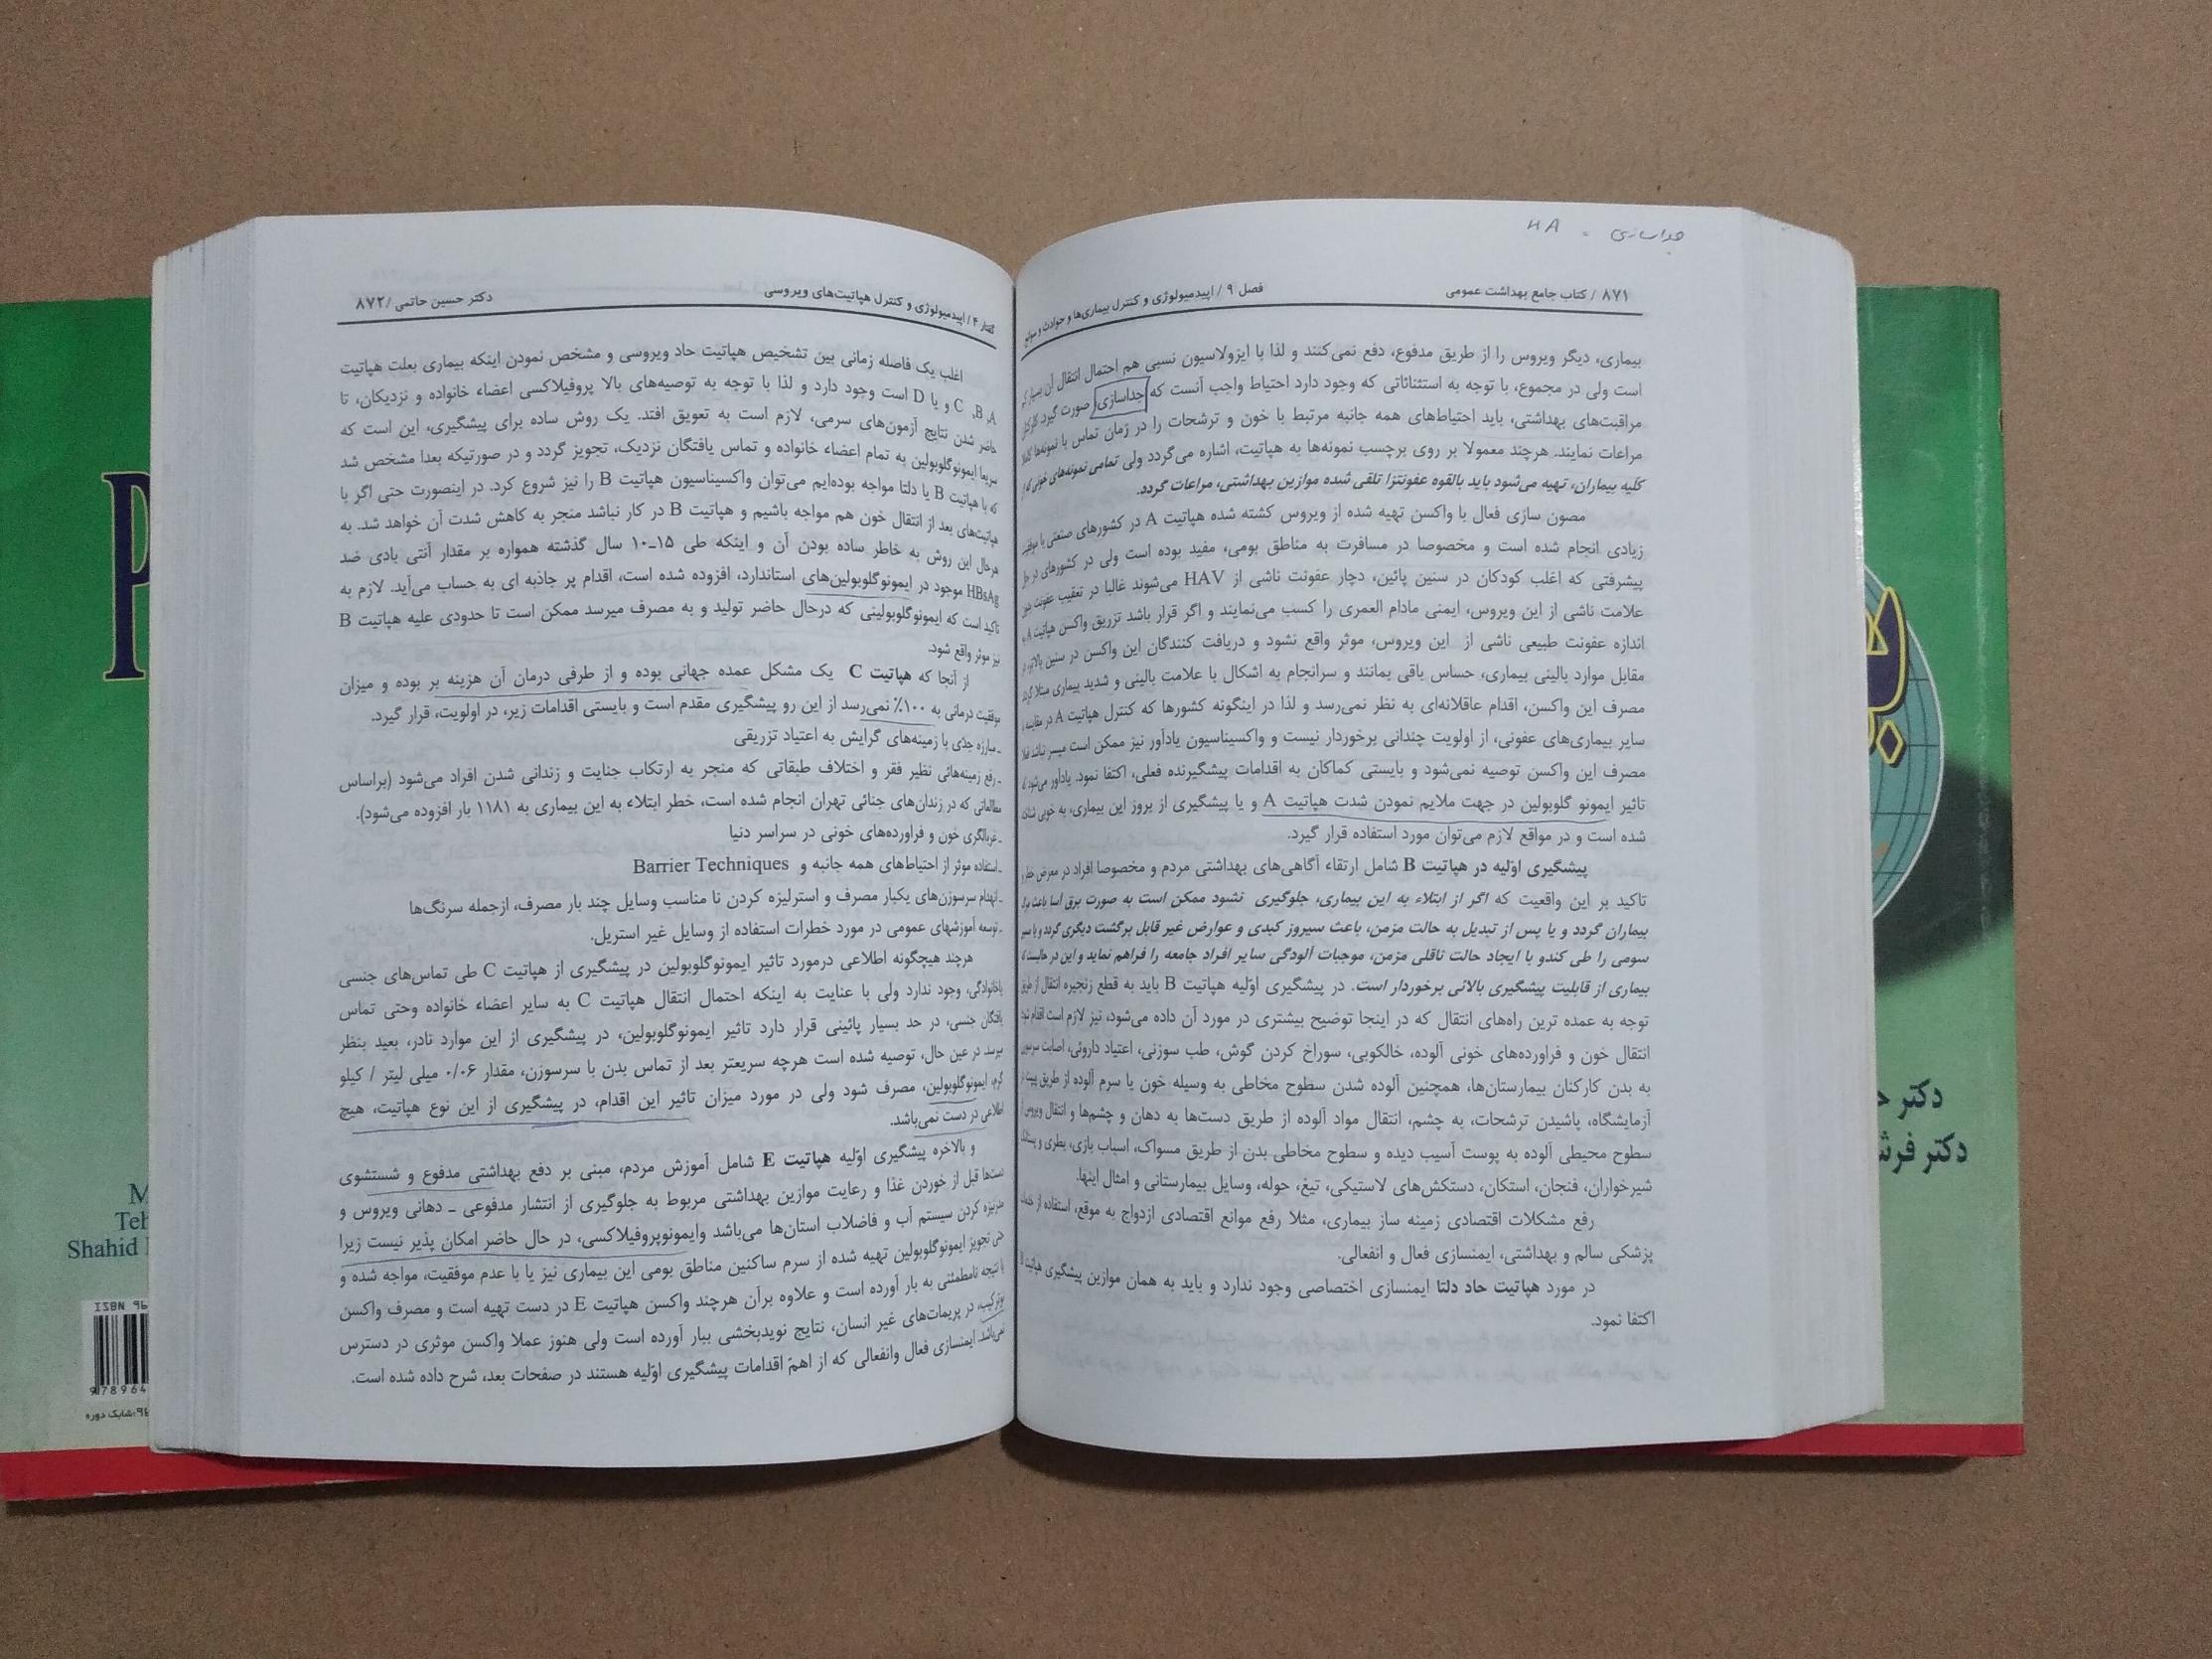 جداسازی = HA
۸۷۱ / کتاب جامع بهداشت عمومی
فصل ۹ / اپیدمیولوژی و کنترل بیماری‌ها و حوادث و سوانح
بیماری، دیگر ویروس را از طریق مدفوع، دفع نمی‌کنند و لذا با ایزولاسیون نسبی هم احتمال انتقال آن بسیار کم
است ولی در مجموع، با توجه به استثنائاتی که وجود دارد احتیاط واجب آنست که جداسازی، صورت گیرد. کارکنان
مراقبت‌های بهداشتی، باید احتیاط‌های همه جانبه مرتبط با خون و ترشحات را در زمان تماس با نمونه‌ها کاملا
مراعات نمایند. هرچند معمولا بر روی برچسب نمونه‌ها به هپاتیت، اشاره می‌گردد ولی تمامی نمونه‌های خونی که از
کلیه بیماران، تهیه می‌شود باید بالقوه عفونتزا تلقی شده موازین بهداشتی، مراعات گردد.
مصون سازی فعال با واکسن تهیه شده از ویروس کشته شده هپاتیت A در کشورهای صنعتی با موفقیت
زیادی انجام شده است و مخصوصا در مسافرت به مناطق بومی، مفید بوده است ولی در کشورهای در حال
پیشرفتی که اغلب کودکان در سنین پائین، دچار عفونت ناشی از HAV می‌شوند غالبا در تعقیب عفونت بدون
علامت ناشی از این ویروس، ایمنی مادام العمری را کسب می‌نمایند و اگر قرار باشد تزریق واکسن هپاتیت A به
اندازه عفونت طبیعی ناشی از این ویروس، موثر واقع نشود و دریافت کنندگان این واکسن در سنین بالاتر، در
مقابل موارد بالینی بیماری، حساس باقی بمانند و سرانجام به اشکال با علامت بالینی و شدید بیماری مبتلا گردند
مصرف این واکسن، اقدام عاقلانه‌ای به نظر نمی‌رسد و لذا در اینگونه کشورها که کنترل هپاتیت A در مقایسه با
سایر بیماری‌های عفونی، از اولویت چندانی برخوردار نیست و واکسیناسیون یادآور نیز ممکن است میسر نباشد فعلا
مصرف این واکسن توصیه نمی‌شود و بایستی کماکان به اقدامات پیشگیرنده فعلی، اکتفا نمود. یادآور می‌شود که
تاثیر ایمونو گلوبولین در جهت ملایم نمودن شدت هپاتیت A و یا پیشگیری از بروز این بیماری، به خوبی شناخته
شده است و در مواقع لازم می‌توان مورد استفاده قرار گیرد.
پیشگیری اوّلیه در هپاتیت B شامل ارتقاء آگاهی‌های بهداشتی مردم و مخصوصا افراد در معرض خطر و
تاکید بر این واقعیت که اگر از ابتلاء به این بیماری، جلوگیری نشود ممکن است به صورت برق آسا باعث مرگ
بیماران گردد و یا پس از تبدیل به حالت مزمن، باعث سیروز کبدی و عوارض غیر قابل برگشت دیگری گردد و یا مسیر
سومی را طی کندو با ایجاد حالت ناقلی مزمن، موجبات آلودگی سایر افراد جامعه را فراهم نماید و این در حالیست که
بیماری از قابلیت پیشگیری بالائی برخوردار است. در پیشگیری اوّلیه هپاتیت B باید به قطع زنجیره انتقال از طریق
توجه به عمده ترین راه‌های انتقال که در اینجا توضیح بیشتری در مورد آن داده می‌شود، نیز لازم است اقدام شود
انتقال خون و فراورده‌های خونی آلوده، خالکوبی، سوراخ کردن گوش، طب سوزنی، اعتیاد داروئی، اصابت سرسوزن
به بدن کارکنان بیمارستان‌ها، همچنین آلوده شدن سطوح مخاطی به وسیله خون یا سرم آلوده از طریق پیپت در
آزمایشگاه، پاشیدن ترشحات، به چشم، انتقال مواد آلوده از طریق دست‌ها به دهان و چشم‌ها و انتقال ویروس از
سطوح محیطی آلوده به پوست آسیب دیده و سطوح مخاطی بدن از طریق مسواک، اسباب بازی، بطری و پستانک
شیرخواران، فنجان، استکان، دستکش‌های لاستیکی، تیغ، حوله، وسایل بیمارستانی و امثال اینها.
رفع مشکلات اقتصادی زمینه ساز بیماری، مثلا رفع موانع اقتصادی ازدواج به موقع، استفاده از خدمات
پزشکی سالم و بهداشتی، ایمنسازی فعال و انفعالی.
در مورد هپاتیت حاد دلتا ایمنسازی اختصاصی وجود ندارد و باید به همان موازین پیشگیری هپاتیت B
اکتفا نمود.
گفتار ۴ / اپیدمیولوژی و کنترل هپاتیت‌های ویروسی
دکتر حسین حاتمی / ۸۷۲
اغلب یک فاصله زمانی بین تشخیص هپاتیت حاد ویروسی و مشخص نمودن اینکه بیماری بعلت هپاتیت
A، B، C و یا D است وجود دارد و لذا با توجه به توصیه‌های بالا پروفیلاکسی اعضاء خانواده و نزدیکان، تا
حاضر شدن نتایج آزمون‌های سرمی، لازم است به تعویق افتد. یک روش ساده برای پیشگیری، این است که
سریعا ایمونوگلوبولین به تمام اعضاء خانواده و تماس یافتگان نزدیک، تجویز گردد و در صورتیکه بعدا مشخص شد
که با هپاتیت B یا دلتا مواجه بوده‌ایم می‌توان واکسیناسیون هپاتیت B را نیز شروع کرد. در اینصورت حتی اگر با
هپاتیت‌های بعد از انتقال خون هم مواجه باشیم و هپاتیت B در کار نباشد منجر به کاهش شدت آن خواهد شد. به
هرحال این روش به خاطر ساده بودن آن و اینکه طی ۱۵ـ۱۰ سال گذشته همواره بر مقدار آنتی بادی ضد
HBsAg موجود در ایمونوگلوبولین‌های استاندارد، افزوده شده است، اقدام پر جاذبه ای به حساب می‌آید. لازم به
تاکید است که ایمونوگلوبولینی که درحال حاضر تولید و به مصرف میرسد ممکن است تا حدودی علیه هپاتیت B
نیز موثر واقع شود.
از آنجا که هپاتیت C یک مشکل عمده جهانی بوده و از طرفی درمان آن هزینه بر بوده و میزان
موفقیت درمانی به ۱۰۰٪ نمی‌رسد از این رو پیشگیری مقدم است و بایستی اقدامات زیر، در اولویت، قرار گیرد.
ـ مبارزه جدّی با زمینه‌های گرایش به اعتیاد تزریقی
ـ رفع زمینه‌هائی نظیر فقر و اختلاف طبقاتی که منجر به ارتکاب جنایت و زندانی شدن افراد می‌شود (براساس
مطالعاتی که در زندان‌های جنائی تهران انجام شده است، خطر ابتلاء به این بیماری به ۱۱۸۱ بار افزوده می‌شود).
ـ غربالگری خون و فراورده‌های خونی در سراسر دنیا
ـ استفاده موثر از احتیاط‌های همه جانبه و Barrier Techniques
ـ انهدام سرسوزن‌های یکبار مصرف و استرلیزه کردن تا مناسب وسایل چند بار مصرف، ازجمله سرنگ‌ها
ـ توسعه آموزشهای عمومی در مورد خطرات استفاده از وسایل غیر استریل.
هرچند هیچگونه اطلاعی درمورد تاثیر ایمونوگلوبولین در پیشگیری از هپاتیت C طی تماس‌های جنسی
یاخانوادگی، وجود ندارد ولی با عنایت به اینکه احتمال انتقال هپاتیت C به سایر اعضاء خانواده وحتی تماس
یافتگان جنسی، در حد بسیار پائینی قرار دارد تاثیر ایمونوگلوبولین، در پیشگیری از این موارد نادر، بعید بنظر
میرسد در عین حال، توصیه شده است هرچه سریعتر بعد از تماس بدن با سرسوزن، مقدار ۰/۰۶ میلی لیتر / کیلو
گرم، ایمونوگلوبولین، مصرف شود ولی در مورد میزان تاثیر این اقدام، در پیشگیری از این نوع هپاتیت، هیچ
اطلاعی در دست نمی‌باشد.
و بالاخره پیشگیری اوّلیه هپاتیت E شامل آموزش مردم، مبنی بر دفع بهداشتی مدفوع و شستشوی
دست‌ها قبل از خوردن غذا و رعایت موازین بهداشتی مربوط به جلوگیری از انتشار مدفوعی ـ دهانی ویروس و
مدرنیزه کردن سیستم آب و فاضلاب استان‌ها می‌باشد وایمونوپروفیلاکسی، در حال حاضر امکان پذیر نیست زیرا
حتی تجویز ایمونوگلوبولین تهیه شده از سرم ساکنین مناطق بومی این بیماری نیز یا با عدم موفقیت، مواجه شده و
یا نتیجه نامطمئنی به بار آورده است و علاوه برآن هرچند واکسن هپاتیت E در دست تهیه است و مصرف واکسن
نوترکیب، در پریمات‌های غیر انسان، نتایج نویدبخشی ببار آورده است ولی هنوز عملا واکسن موثری در دسترس
نمی‌باشد. ایمنسازی فعال وانفعالی که از اهمّ اقدامات پیشگیری اوّلیه هستند در صفحات بعد، شرح داده شده است.
دکتر
دکتر
Shahid
ISBN 96
9 78964
شابک دوره